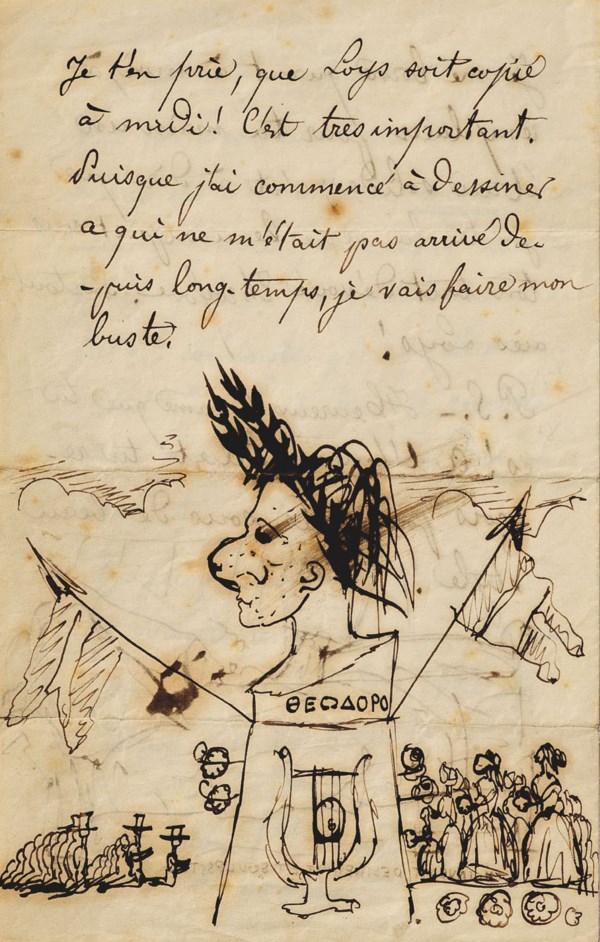 Je t'en prie, que Loys soit copié
à midi! C'est très important.
Puisque j'ai commencé à dessiner
a qui ne m'était pas arrivé de-
-puis long-temps, je vais faire mon
buste.
ΘΕΩΔΟΡΟ